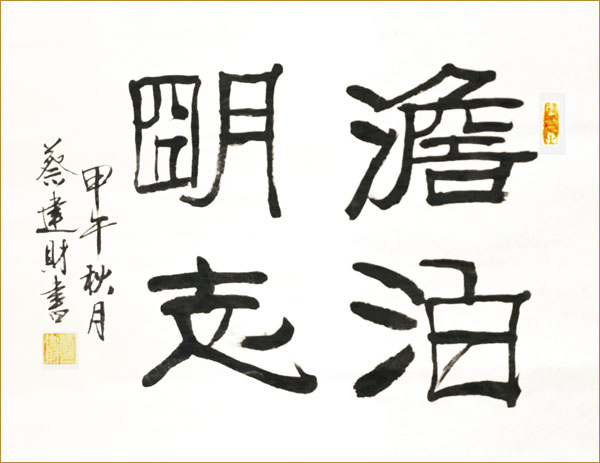 澹泊
明志
甲午秋月
蔡建財書